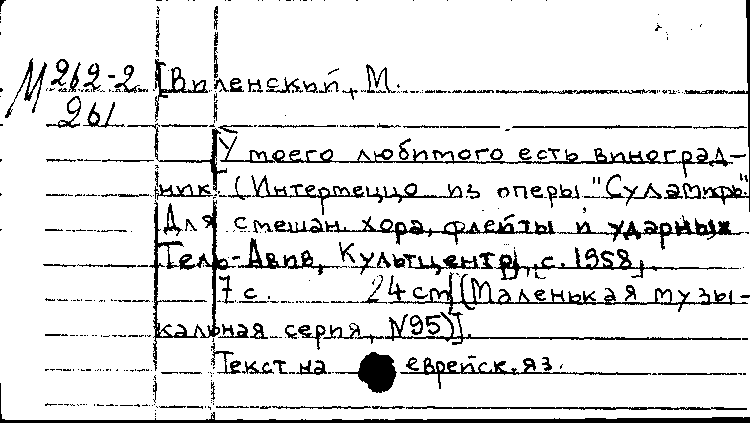 М 262-2 [Виленский, М.
261
[У моего любимого есть виноград-
ник. (Интермеццо из оперы "Суламифь"
Для смешан. хора, флейты и ударных
Тель-Авив, Культцентр], [с. 1958].
7 с. 24 cm [(Маленькая музы-
кальная серия, N95)].
Текст на еврейск. яз.